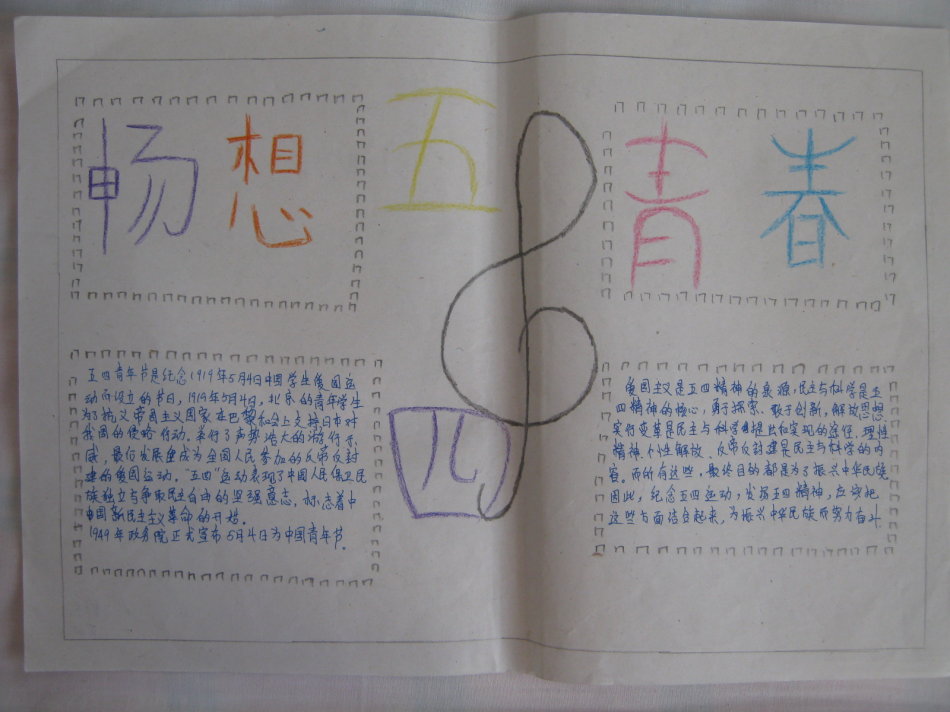 畅想
五
四
青春
五四青年节是纪念1919年5月4日中国学生爱国运
动而设立的节日，1919年5月4日，北京的青年学生
为了抗议帝国主义国家在巴黎和会上支持日本对
我国的侵略行动，举行了声势浩大的游行示
威，最后发展重成为全国人民参加的反帝反封
建的爱国运动。“五四”运动表现了中国人民保卫民
族独立与争取民主自由的坚强意志，标志着中
中国新民主主义革命的开始。
1949年政务院正式宣布5月4日为中国青年节。
爱国主义是五四精神的源，民主与科学是五
四精神的核心，勇于探索、敢于创新、解放思想
实行变革是民主与科学提出和实现的途径，理性
精神、个性解放、反帝反封建是民主与科学的内
容。而所有这些，最终目的都是为了振兴中华民族
因此，纪念五四运动，发扬五四精神，应该把
这些方面结合起来，为振兴中华民族而努力奋斗